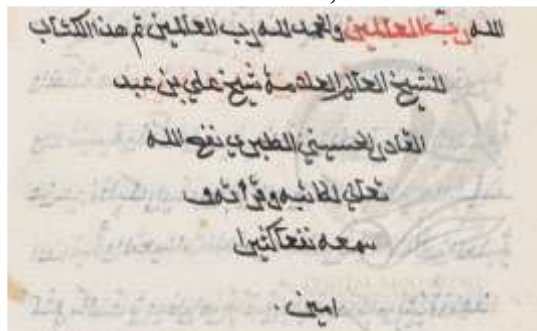 الله رب العلمين والحمد لله رب العلمين تم هذا الكتاب
للشيخ العالم العلامة شيخ علي بن عبد
القادر الحسيني الطبري نفع الله
تعلى لكاتبه وقرأته و
سمعه نفعا كثيرا
امين.